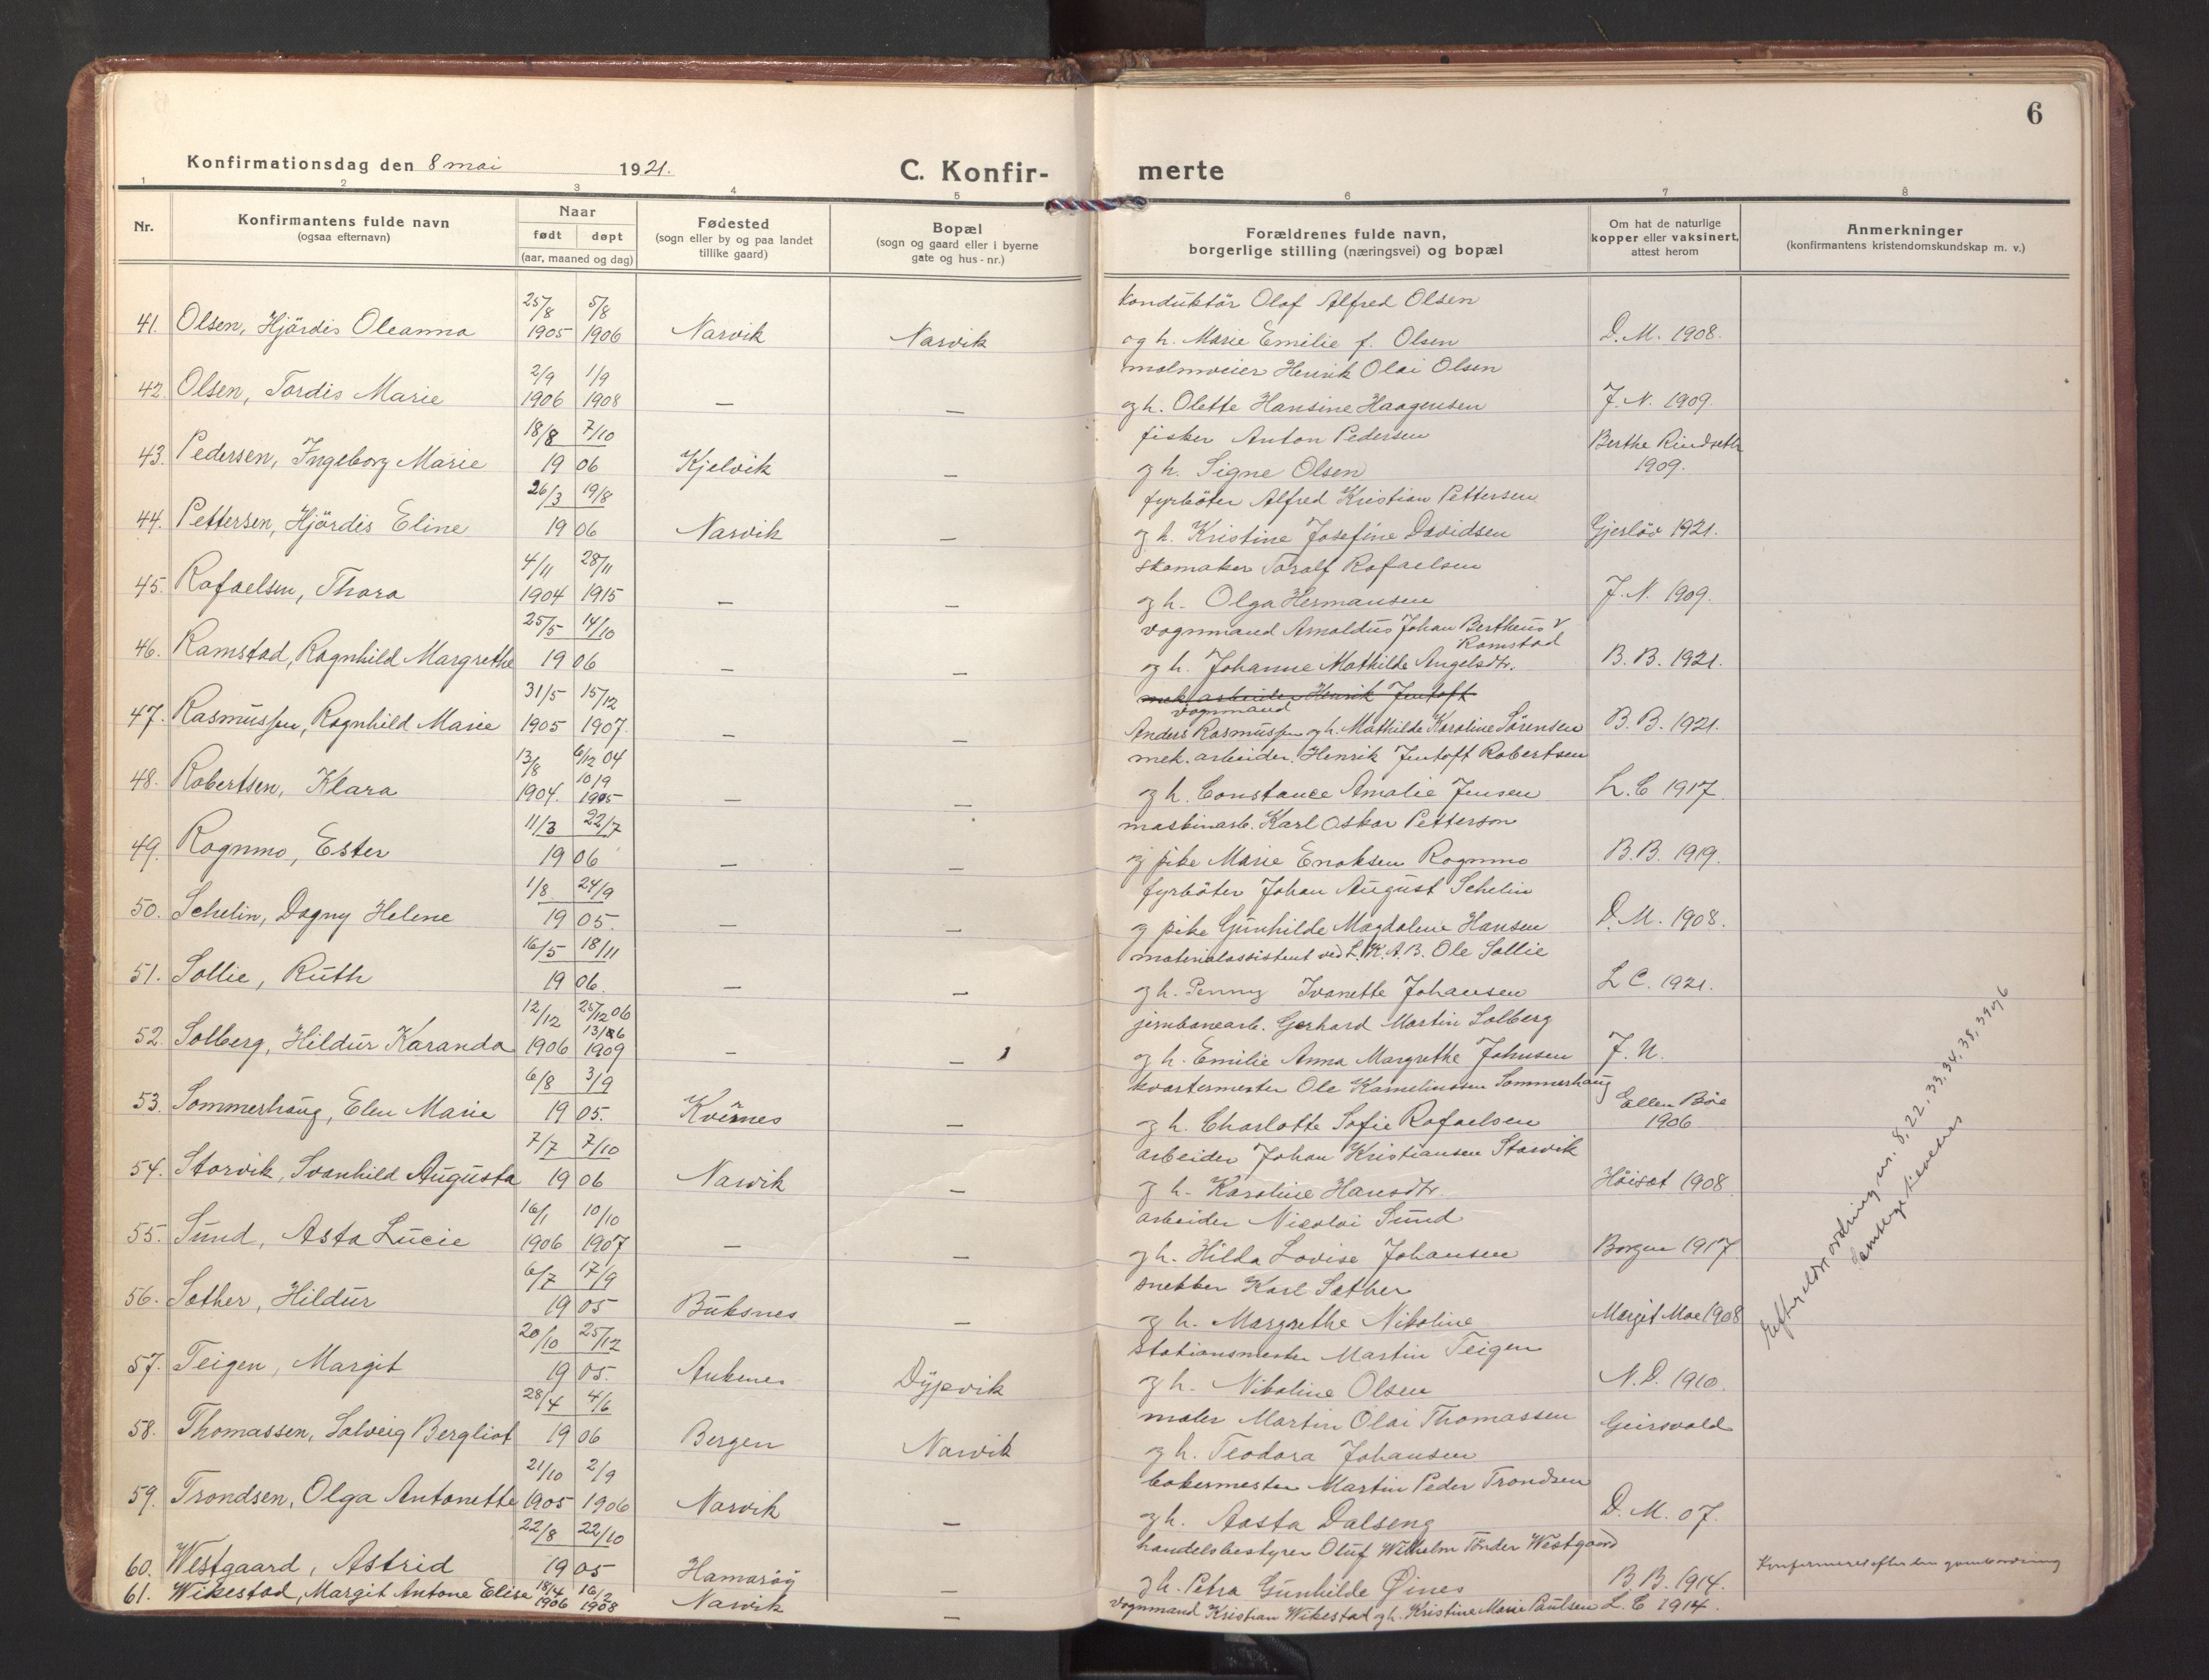 6
Konfirmationsdag den 8 mai 1921.
C. Konfir-
merte
1 2 3 4 5 6 7 8
Nr.
Konfirmantens fulde navn
(ogsaa efternavn)
Naar
født døpt
(aar, maaned og dag)
Fødested
(sogn eller by og paa landet
tillike gaard)
Bopæl
(sogn og gaard eller i byerne
gate og hus-nr.)
Forældrenes fulde navn,
borgerlige stilling (næringsvei) og bopæl
Om hat de naturlige
kopper eller vaksinert,
attest herom
Anmerkninger
(konfirmantens kristendomskundskap m. v.)
25/8 5/8 Konduktör Olaf Alfred Olsen
41. Olsen, Hjördis Oleanna 1905 1906 Narvik Narvik og h. Marie Emilie f. Olsen D. M. 1908.
2/9 1/9 malmveier Henrik Olai Olsen
42. Olsen, Tordis Marie 1906 1908 — — og h. Olette Hansine Haagensen J. N. 1909.
18/8 7/10 fisker Anton Pedersen Berthe Rindseth
43. Pedersen, Ingeborg Marie 1906 Kjelvik — og h. Signe Olsen 1909.
26/3 19/8 fyrböter Alfred Kristian Pettersen
44. Pettersen, Hjördis Eline 1906 Narvik — og h. Kristine Josefine Davidsen Gjerlöv 1921.
4/11 28/11 skomaker Toralf Rafaelsen
45. Rafaelsen, Thora 1904 1915 — — og h. Olga Hermansen J. N. 1909.
25/5 14/10 vognmand Arnoldus Johan Bertheus
Ramstad
46. Ramstad, Ragnhild Margrethe 1906 — — og h. Johanne Mathilde Angelsdtr. B. B. 1921.
31/5 15/12 mek. arbeider Henrik Jentoft
vognmand
47. Rasmussen, Ragnhild Marie 1905 1907. — — Anders Rasmussen og h. Mathilde Karoline Sörensen B. B. 1921.
13/8 6/12 04 mek. arbeider. Henrik Jentoft Robertsen
48. Robertsen, Klara 1904. 10/9 1905 — — og h. Constance Amalie Jensen L. C 1917.
11/3 22/7 maskinarb. Karl Oskar Petterson
49. Rognmo, Ester 1906 — — og pike Marie Enoksen Rognmo B. B. 1919.
1/8 24/9 fyrböter Johan August Schelin
50. Schelin, Dagny Helene 1905. — — og pike Gunhilde Magdalene Hansen D. M. 1908.
16/5 18/11 materialassistent ved L. K. A. B. Ole Sollie
51. Sollie, Ruth 1906. — — og h. Penny Ivanette Johansen L C. 1921.
12/12 25/12 06 jernbanearb. Gerhard Martin Solberg
52. Solberg, Hildur Karanda 1906 1909 — — og h. Emilie Anna Margrethe Johnsen J. N.
6/8 3/9 kvartermester Ole Kornelinssen Sommerhaug
53. Sommerhaug, Elen Marie 1905. Kvernes — og h. Charlotte Sofie Rafaelsen Ellen Böe 1906
7/7 7/10 arbeider Johan Kristiansen Storvik
54. Storvik, Svanhild Augusta 1906 Narvik — og h. Karoline Hansdtr. Höisæt 1908
16/1 10/10 arbeider Nicolai Sund
55. Sund, Asta Lucie 1906 1907 — — og h. Hilda Lovise Johansen Borgen 1917
6/7 17/9 snekker Karl Sather
56. Sather, Hildur 1905 Buksnes — og h. Margrethe Nikoline Margit Moe 1908
20/10 25/12 Stationsmester Martin Teigen
57. Teigen, Margit 1905. Ankenes Dypvik og h. Nikoline Olsen N. D. 1910.
28/4 4/6 maler Martin Olai Thomassen Geirsvold
58. Thomassen, Solveig Bergliot 1906 Bergen Narvik og h. Teodora Johansen
21/10 2/9 bakermester Martin Peder Trondsen
59. Trondsen, Olga Antonette 1905 1906 Narvik — og h. Aasta Dalseng D. M. 07.
22/8 22/10 handelsbestyrer Oluf Wilhelm Tönder Westgaard
60. Westgaard, Astrid 1905 Hamaröy — og h. Petra Gunhilde Øines B. B. 1914. Konfirmeret efter den gamle ordning
61. Wikestad, Margit Antone Elise 18/4 1906 16/2 1908 Narvik — Vognmand Kristian Wikestad og h. Kristine Marie Paulsen L. C 1914.
Efter eldre ordning nr. 8, 22, 33, 34, 38, 39 og 6